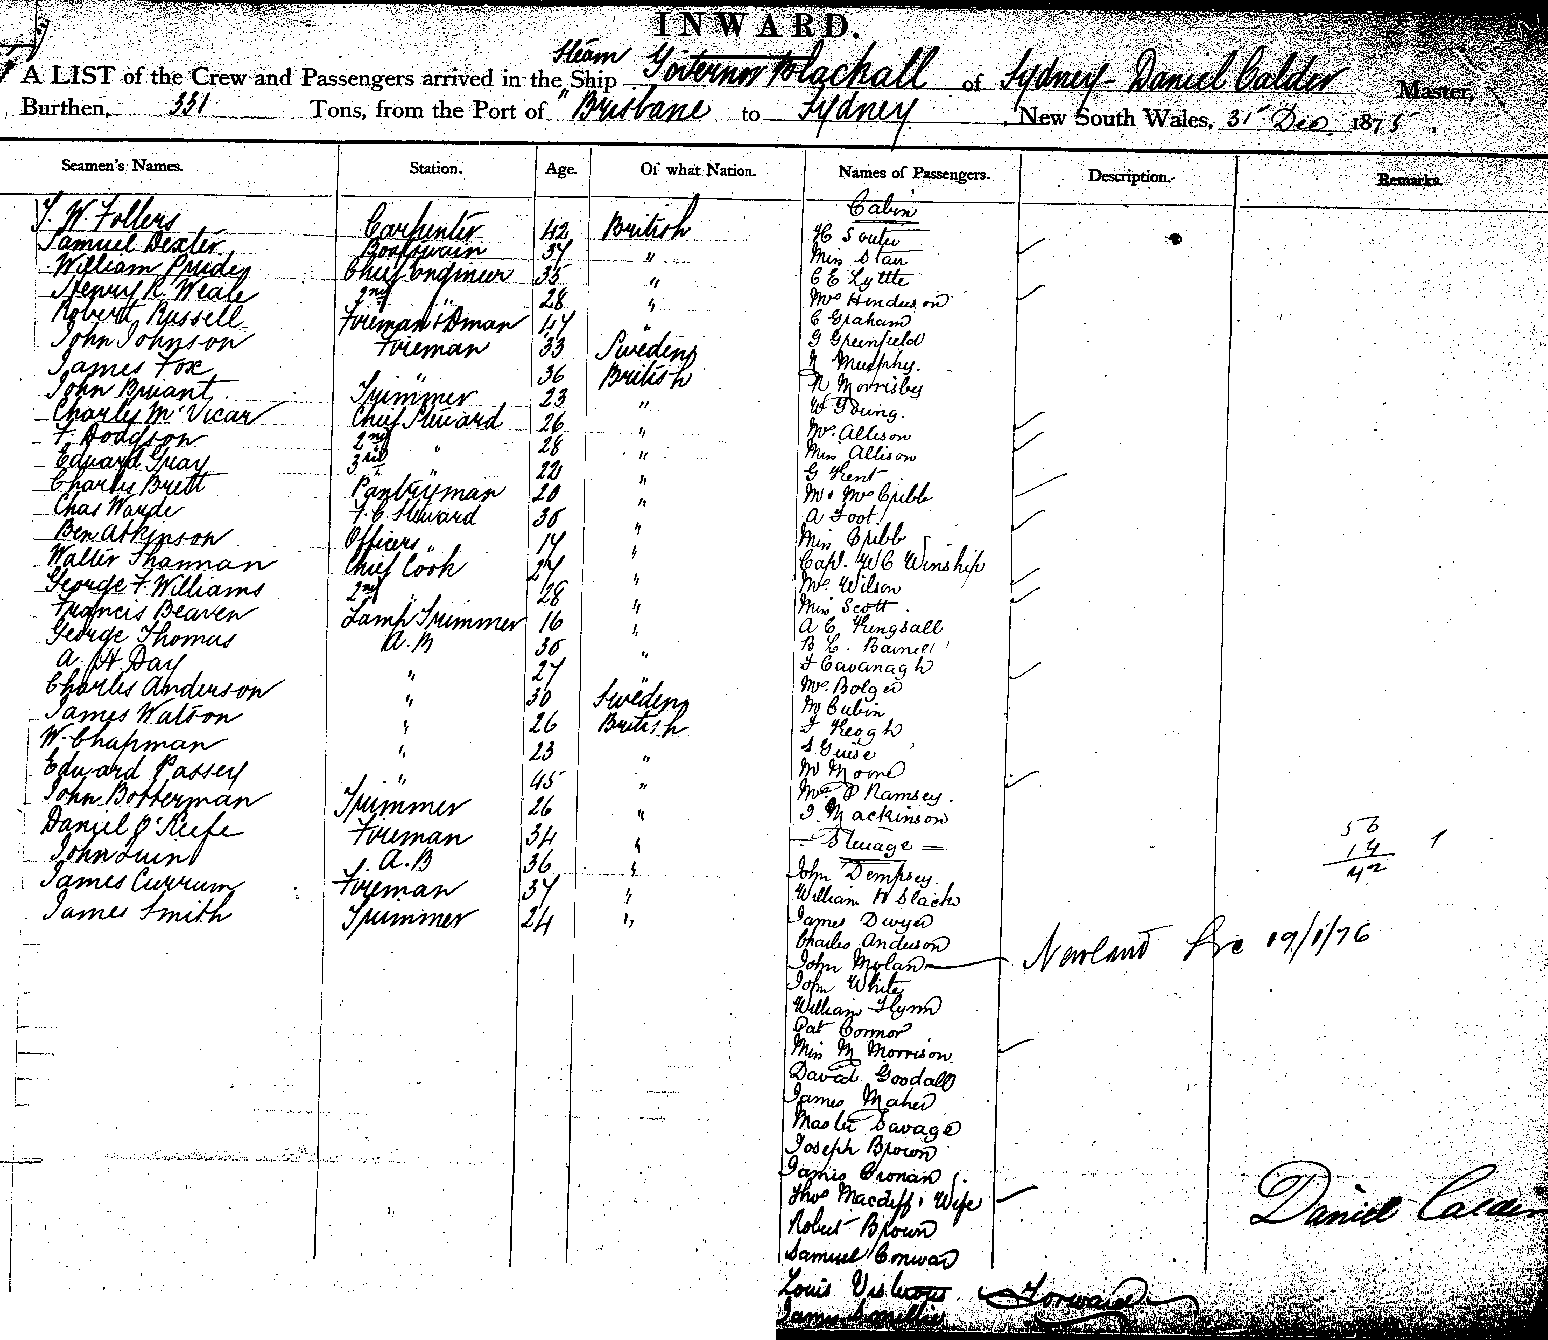 INWARD.
A LIST of the Crew and Passengers arrived in the Steam Ship Governor Blackall of Sydney - Daniel Calder Master,
Burthen, 331 Tons, from the Port of Brisbane to Sydney New South Wales, 31 Dec 1875.
Seamen's Names. Station. Age. Of what Nation. Names of Passengers. Description. Remarks.
Cabin
W Follers Carpenter 42 British H Souter
Samuel Dexter Boatswain 37 " Miss Starr
William Pridey Chief Engineer 35 " C E Lyttle
Henry R. Weale 2nd " 28 " Mrs Henderson
Robert Russell Foreman & Dman 47 " C Graham
John Johnson Foreman 33 Swedens G Greenfield
James Fox " 36 British Murphy.
John Bryant Trimmer 23 " R Morrisby
Charles McVicar Chief Steward 26 " W Young.
F. Dodgson 2nd " 28 " Mr. Allison
Edward Gray 3rd " 22 " Miss Allison
Charles Brett Pantryman 20 " G Kent
Chas Warde F.C Steward 30 " Mr & Mrs Cribb
Ben Atkinson Officers " 17 " A Foot
Walter Shannan Chief Cook 27 " Miss Cribb
George F. Williams 2nd " 28 " Capt. W C Winship
Francis Beaven Lamp Trimmer 16 " Mrs Wilson
George Thomas A.B 30 " Miss Scott.
A. H. Day " 27 " A C Kingsall
Charles Anderson " 30 Swedens
James Watson " 26 British F Cavanagh
W. Chapman " 23 " Mrs Bolger
Edward Passey " 45 " M Cubin
John Botterman Trimmer 26 " F Keogh
Daniel O'Keefe Foreman 34 " S Guise
John Quin A.B 36 " M Moore
James Currum Foreman 37 " Ramsey.
James Smith Trimmer 24 " Mackinson
Steerage
John Dempsey
William H Slack
James Dwyer
Charles Anderson
John Molan Newland Fre 19/1/76
John White
William Flynn
Pat Connor
Miss M Morrison
David Goodall
James Maher
Master Savage
Joseph Brown
James Cronan
Thos Macdiff & Wife
Robert Brown
Samuel Conwar
Louis Forward
James Smellie
56
14
42
Daniel Calder